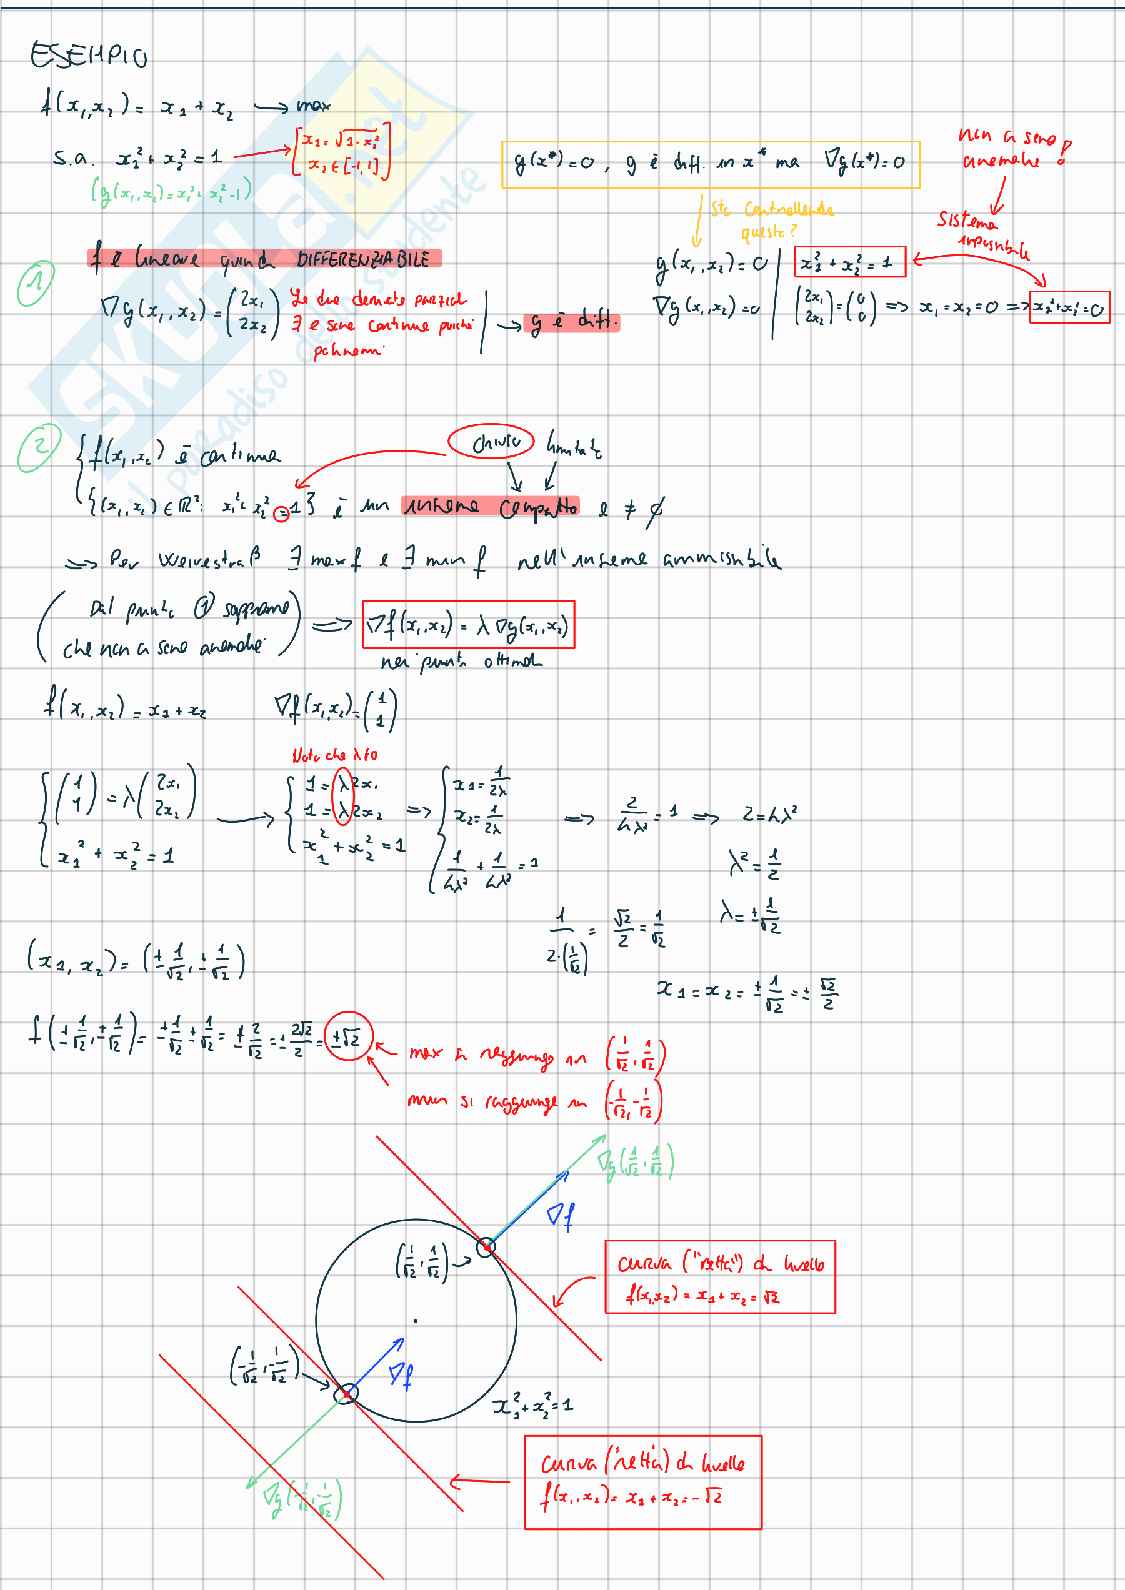 ESEMPIO
f(x₁,x₂) = x₁ + x₂ → max
s.a. x₁² + x₂² = 1 → [x₁ = √(1-x₂²)
x₂ ∈ [-1,1]]
(g(x₁,x₂) = x₁² + x₂² - 1)
g(x*) = 0, g è diff. in x* ma ∇g(x*) = 0
non ci sono
anomalie!
Sto controllando
questo?
Sistema
impossibile
① f è lineare quindi DIFFERENZIABILE
∇g(x₁,x₂) = (2x₁
2x₂)
Le due derivate parziali
∃ e sono continue poiché
polinomi
→ g è diff.
g(x₁,x₂) = 0 | x₁² + x₂² = 1
∇g(x₁,x₂) = 0 | (2x₁ 2x₂) = (0 0) ⇒ x₁ = x₂ = 0 ⇒ x₁² + x₂² = 0
② chiuso limitato
{ f(x₁,x₂) è continua
{(x₁,x₂) ∈ ℝ²: x₁² + x₂² = 1} è un insieme compatto e ≠ ∅
⇒ Per Weierstraß ∃ max f e ∃ min f nell'insieme ammissibile
(Dal punto ① sappiamo
che non ci sono anomalie) ⇒ ∇f(x₁,x₂) = λ∇g(x₁,x₂)
nei punti ottimali
f(x₁,x₂) = x₁ + x₂ ∇f(x₁,x₂) = (1
1)
Nota che λ≠0
{ (1 1) = λ(2x₁ 2x₂)
x₁² + x₂² = 1
→ { 1 = λ2x₁
1 = λ2x₂
x₁² + x₂² = 1
⇒ { x₁ = 1/2λ
x₂ = 1/2λ
1/4λ² + 1/4λ² = 1
⇒ 2/4λ² = 1 ⇒ 2 = 4λ²
λ² = 1/2
λ = ± 1/√2
1/(2·(1/√2)) = √2/2 = 1/√2
x₁ = x₂ = ± 1/√2 = ± √2/2
(x₁,x₂) = (± 1/√2, ± 1/√2)
f(± 1/√2, ± 1/√2) = ± 1/√2 ± 1/√2 = ± 2/√2 = ± 2√2/2 = ±√2
max si raggiunge in (1/√2, 1/√2)
min si raggiunge in (-1/√2, -1/√2)
∇g(1/√2, 1/√2)
∇f
(1/√2, 1/√2)
curva ("retta") di livello
f(x₁,x₂) = x₁ + x₂ = √2
(-1/√2, -1/√2)
∇f
x₁² + x₂² = 1
curva ("retta") di livello
f(x₁,x₂) = x₁ + x₂ = -√2
∇g(-1/√2, -1/√2)
SKUOLA.net
il paradiso dello studente